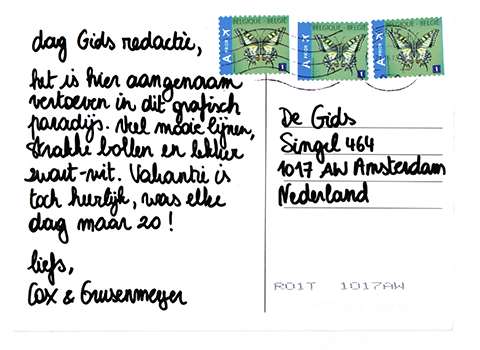 dag Gids redactie,
het is hier aangenaam
vertoeven in dit grafisch
paradijs. Veel mooie lijnen,
strakke bollen en lekker
zwart-wit. Vakantie is
toch heerlijk, was elke
dag maar zo!
liefs,
Cox & Grusenmeyer
BELGIQUE - BELGIË
A PRIOR
1
BELGIQUE - BELGIË
A PRIOR
1
BELGIQUE - BELGIË
A PRIOR
1
De Gids
Singel 464
1017 AW Amsterdam
Nederland
R01T 1017AW